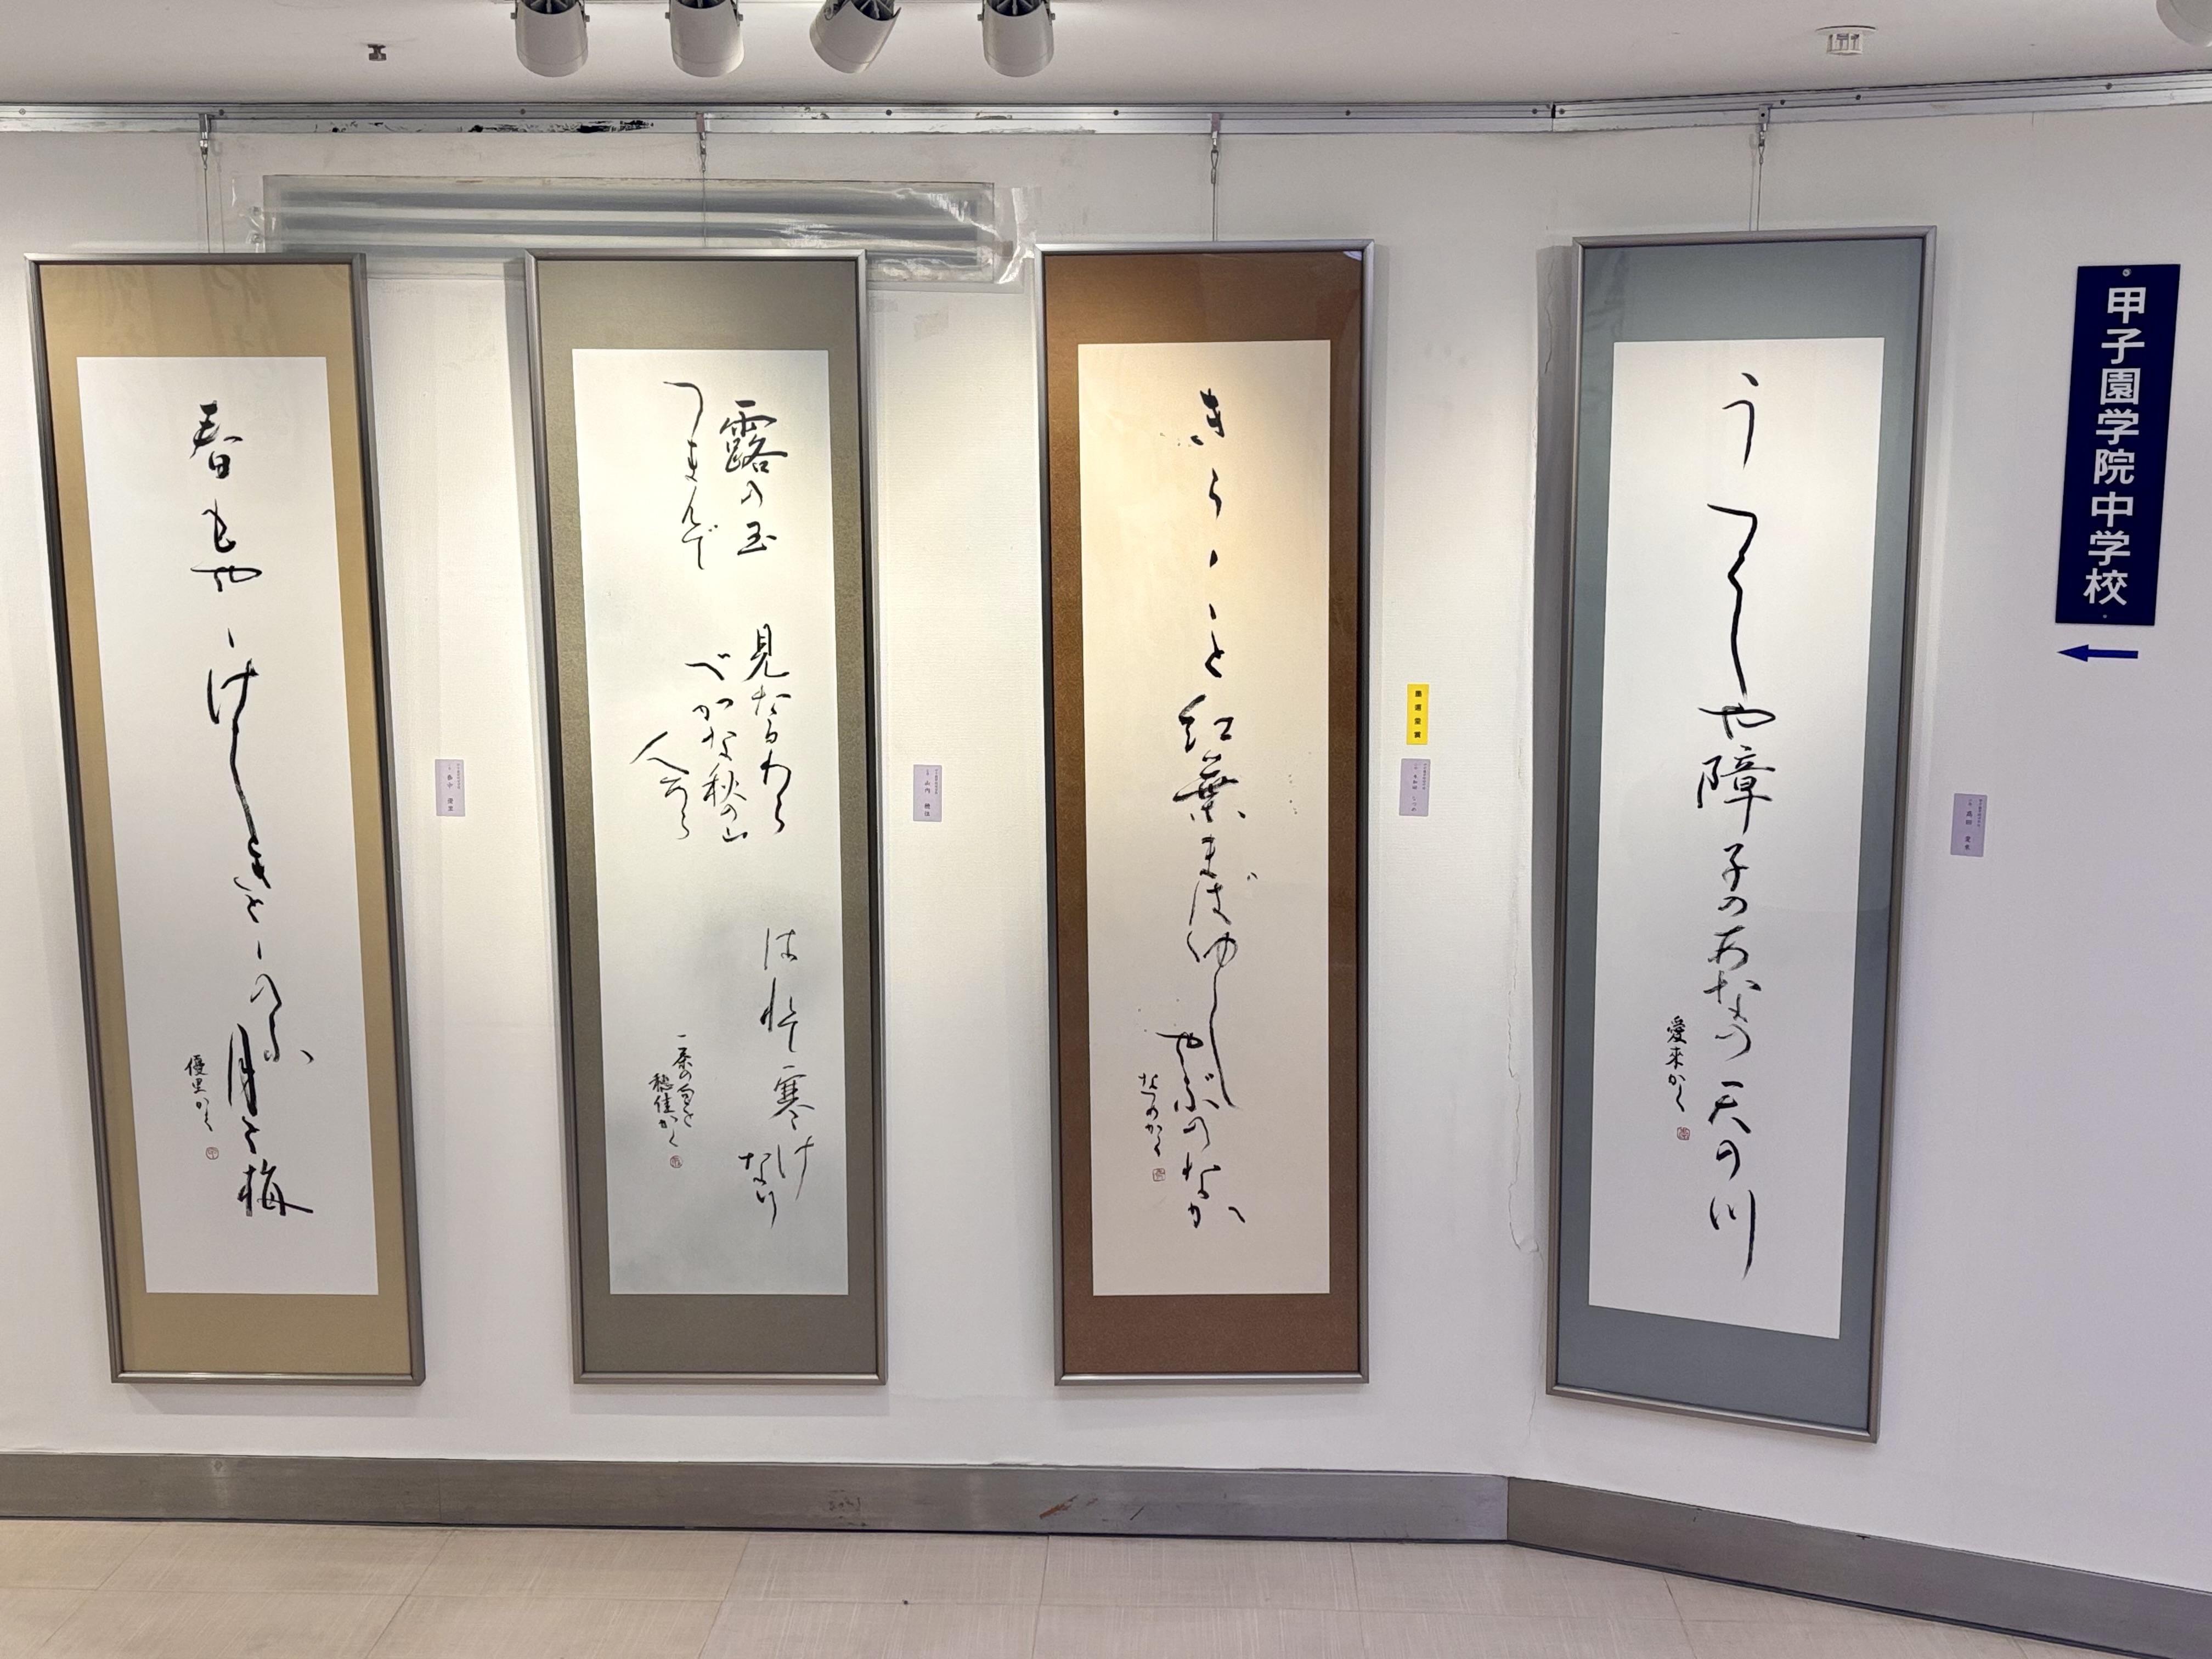 甲子園学院中学校
うつくしや障子のあなの天の川
愛来かく
きらゝゝと紅葉まばゆしやぶのなか
露の玉
つまんで
見たるわら
べかな秋の山
人あら
はれて寒け
なり
一茶の句を
穂佳かく
山内 穂佳
春もやゝけしきとゝのふ月と梅
優里かく